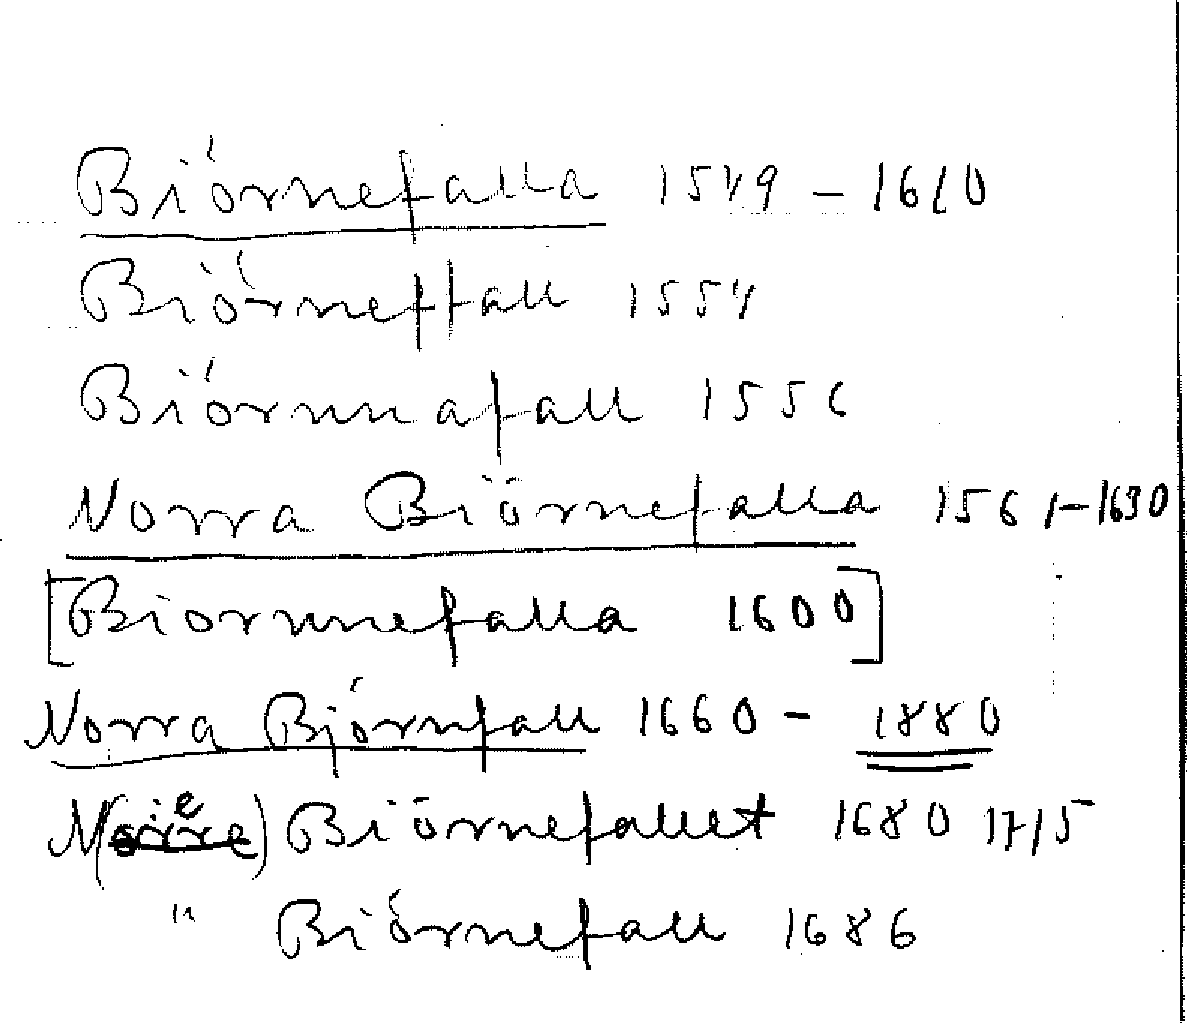 Biórnefalla 1549 – 1610
Biórneffall 1554
Biórnnafall 1556
Norra Biörnefalla 1561–1630
[Biornnefalla 1600]
Norra Bjórnfall 1660 – 1880
N( ) Biörnefallet 1680 1715
" Biórnefall 1686